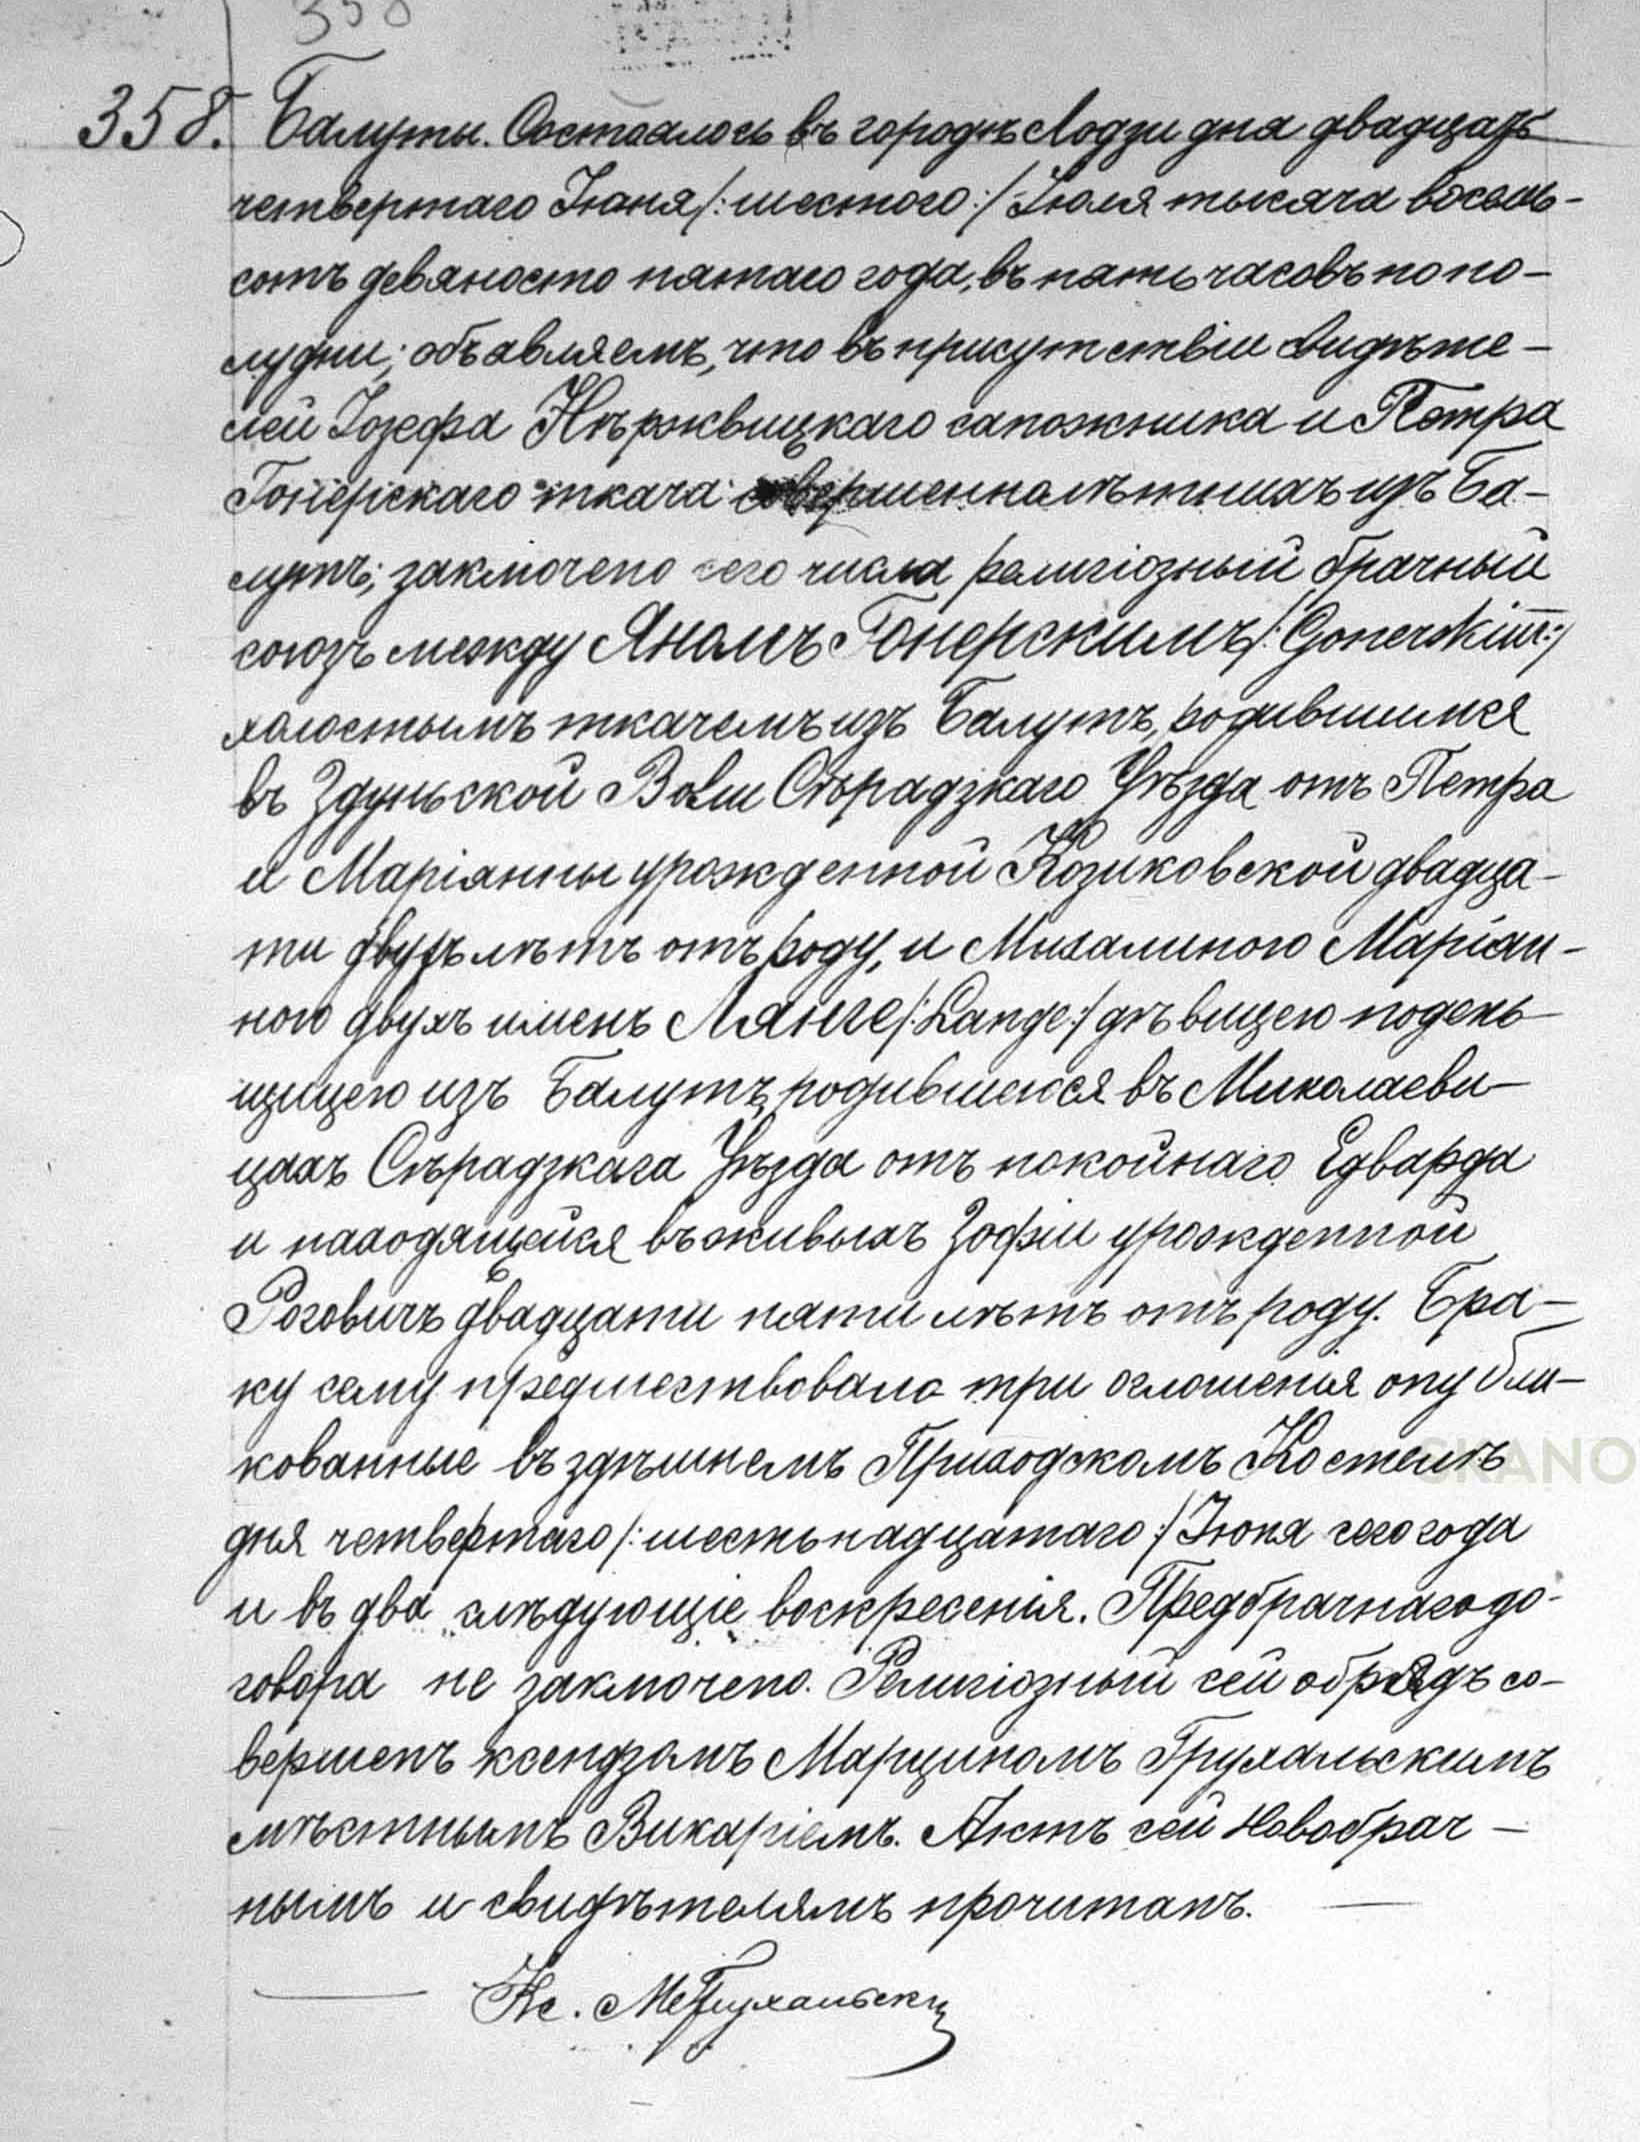 358
358. Балуты. Состоялось въ городѣ Лодзи дня двадцать
четвертаго Іюня /: шестого :/ Іюля тысяча восемь-
сотъ девяносто пятаго года, въ пять часовъ по по-
лудни; объявляемъ, что въ присутствіи свидѣте-
лей Іозефа сапожника и Петра
Гонерскаго ткача совершеннолѣтнихъ изъ Ба-
лутъ; заключено сего числа религіозный брачный
союзъ между Яномъ Гонерскимъ /: Gonerskim :/
холостымъ ткачемъ изъ Балутъ, родившимся
въ Здуньской Воли Сѣрадзкаго Уѣзда отъ Петра
и Маріянны урожденной Козиковской двадца-
ти двухъ лѣтъ отъ роду, и Михалиною Маріан-
ною двухъ именъ Лянге /: Lange :/ дѣвицею подень-
щицею изъ Балутъ, родившейся въ Миколаеви-
цахъ Сѣрадзкага Уѣзда отъ покойнаго Едварда
и находящейся въ живыхъ Зофіи урожденной
Роговичъ двадцати пяти лѣтъ отъ роду. Бра-
ку сему предшествовало три оглошенія опубли-
кованные въ здѣшнемъ Приходскомъ Костелѣ
дня четвертаго /: шестьнадцатаго :/ Іюня сего года
и въ два слѣдующіе воскресенія. Предбрачнаго до-
говора не заключено. Религіозный сей обрядъ со-
вершенъ ксендзомъ Марциномъ Грухальскимъ
мѣстнымъ Викаріемъ. Актъ сей Новобрач-
нымъ и свидѣтелямъ прочитанъ.
Кс. М Грухальски
SKANO